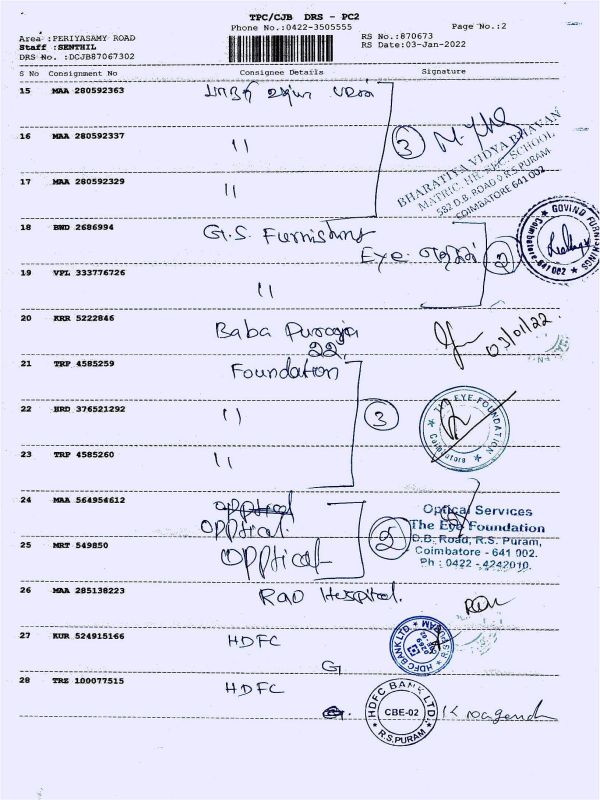 TPC/CJB DRS - PC2
Phone No.:0422-3505555
Page No.:2
Area :PERIYASAMY ROAD
RS No.:870673
Staff :SENTHIL
RS Date:03-Jan-2022
DRS No. :DCJB87067302
S No Consignment No Consignee Details Signature
15 MAA 280592363
16 MAA 280592337 "
3
BHARATIYA VIDYA BHAVAN
MATRIC. HR. SEC. SCHOOL
582 D.B. ROAD R.S. PURAM
COIMBATORE 641 002
17 MAA 280592329 "
18 BWD 2686994 G.S. Furnishing
Eye
2
GOVIND FURNISHINGS
Coimbatore-641 002
19 VPL 333776726 "
20 KRR 5222846 Baba
22
03/01/22.
21 TRP 4585259 Foundation
22 BRD 376521292 "
3
THE EYE FOUNDATION
Coimbatore
23 TRP 4585260 "
24 MAA 564954612 Opptical
Opptical.
2
Optical Services
The Eye Foundation
D.B. Road, R.S. Puram,
Coimbatore - 641 002.
Ph : 0422 - 4242010.
25 MRT 549850 Opptical
26 MAA 285138223 Rao Hospital.
27 KUR 524915166 HDFC
G
HDFC BANK LTD.
R.S. PURAM
28 TRZ 100077515 HDFC
G.
HDFC BANK LTD.
CBE-02
R.S. PURAM